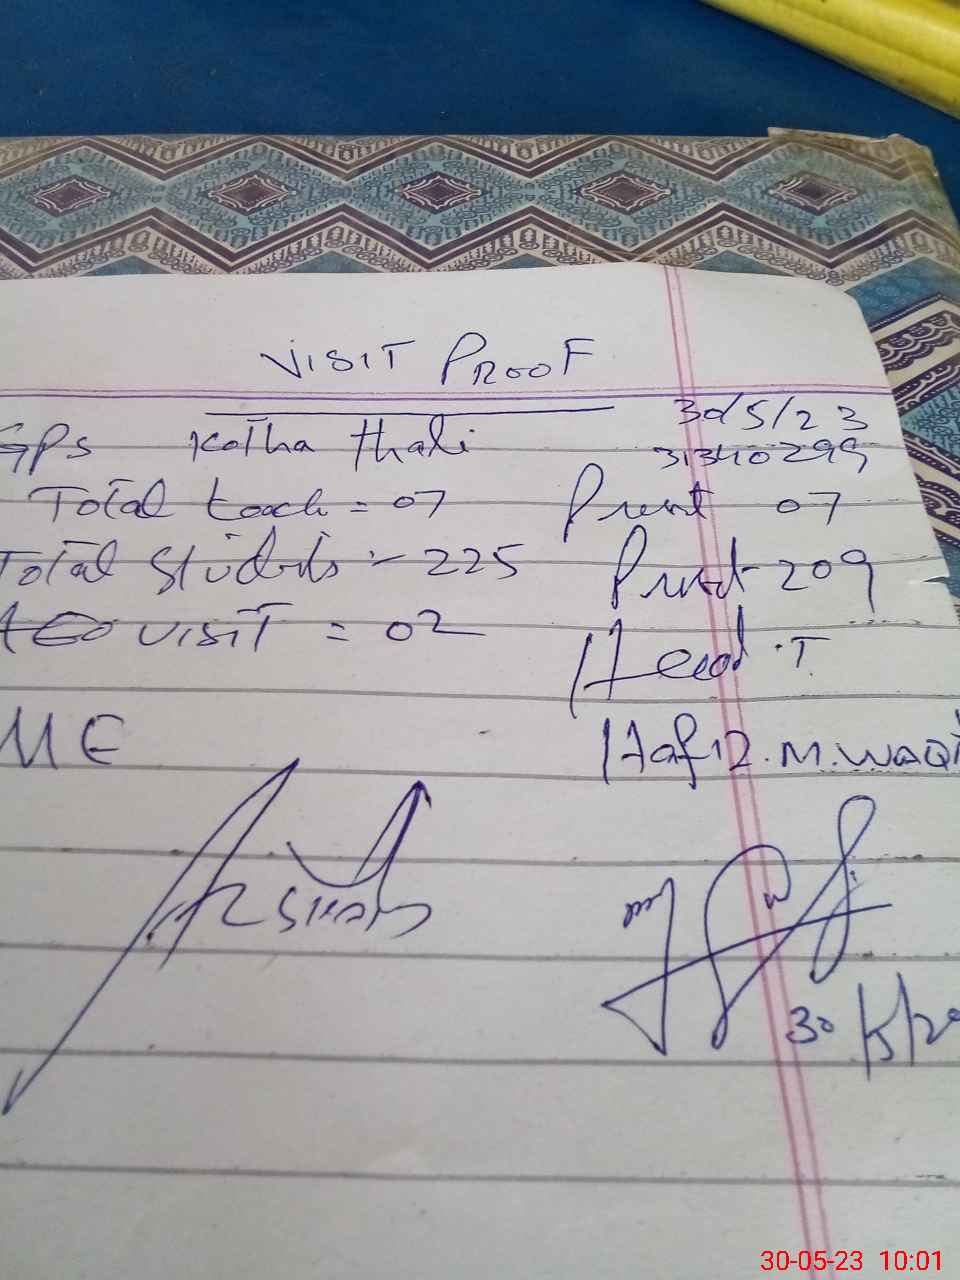 VISIT PROOF
30/5/23
GPS Kotha thali
31340299
Total teach = 07 Present 07
Total Students - 225 Present 209
AEO VISIT = 02
Head .T
ME
Hafiz. M. WAQ
30
30-05-23 10:01